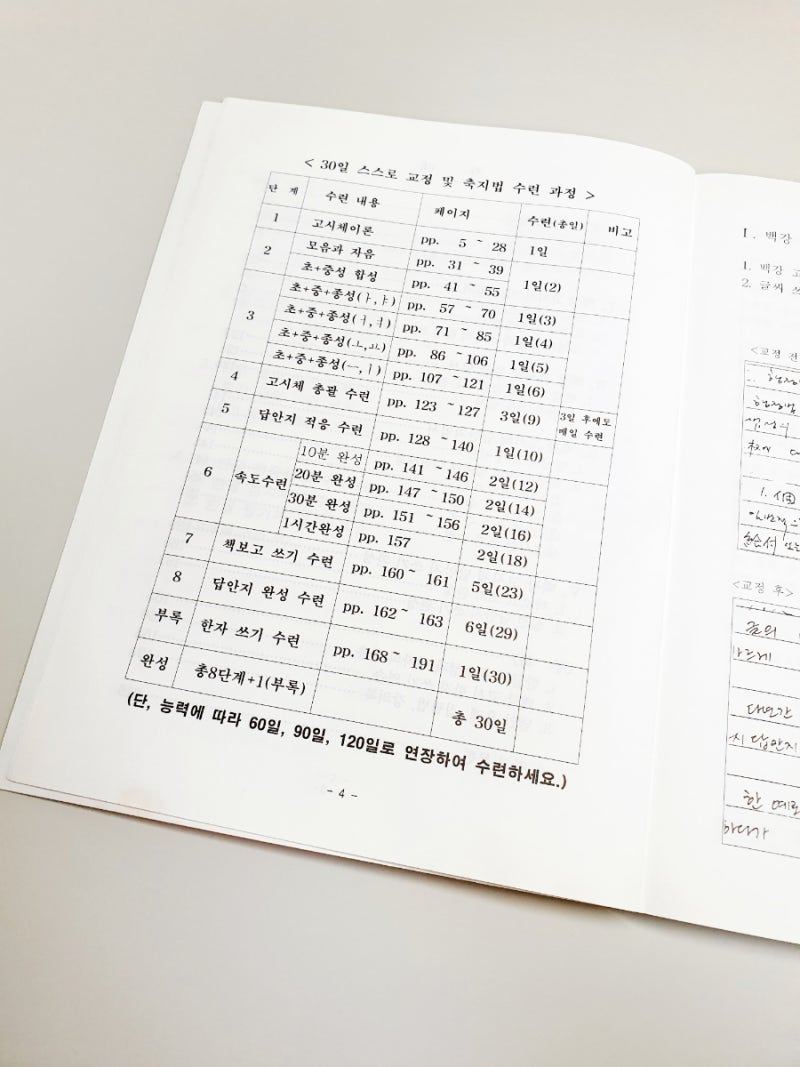 < 30일 스스로 교정 및 축지법 수련 과정 >
단 계 수련 내용 페이지 수련(총일) 비고
1 고시체이론 pp. 5 ~ 28 1일
2 모음과 자음 pp. 31 ~ 39 1일(2)
초+중성 합성 pp. 41 ~ 55
3 초+중+종성(ㅏ,ㅑ) pp. 57 ~ 70 1일(3)
초+중+종성(ㅓ,ㅕ) pp. 71 ~ 85 1일(4)
초+중+종성(ㅗ,ㅛ) pp. 86 ~106 1일(5)
초+중+종성(ㅡ,ㅣ) pp. 107 ~121 1일(6)
4 고시체 총괄 수련 pp. 123 ~ 127 3일(9) 3일 후에도
매일 수련
5 답안지 적응 수련 pp. 128 ~ 140 1일(10)
6 속도수련 10분 완성 pp. 141 ~ 146 2일(12)
20분 완성 pp. 147 ~ 150 2일(14)
30분 완성 pp. 151 ~ 156 2일(16)
1시간완성 pp. 157 2일(18)
7 책보고 쓰기 수련 pp. 160~ 161 5일(23)
8 답안지 완성 수련 pp. 162~ 163 6일(29)
부록 한자 쓰기 수련 pp. 168~ 191 1일(30)
완성 총8단계+1(부록) 총 30일
(단, 능력에 따라 60일, 90일, 120일로 연장하여 수련하세요.)
- 4 -
Ⅰ. 백강
1. 백강 고
2. 글씨 쓰
<교정 전
<교정 후>
다면간
시 답안지
한 예로
하다가